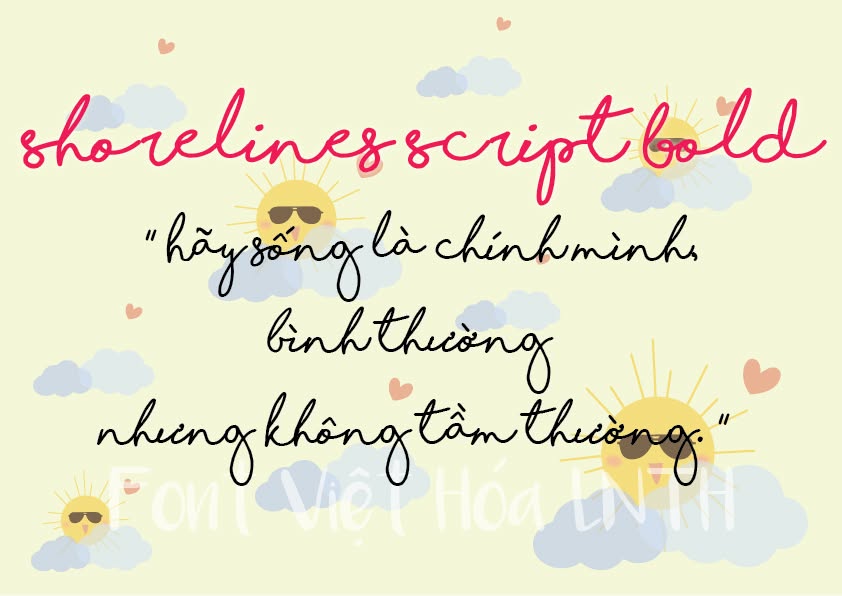 shorelines script bold
"hãy sống là chính mình,
bình thường
nhưng không tầm thường."
Font Việt Hóa LNTH